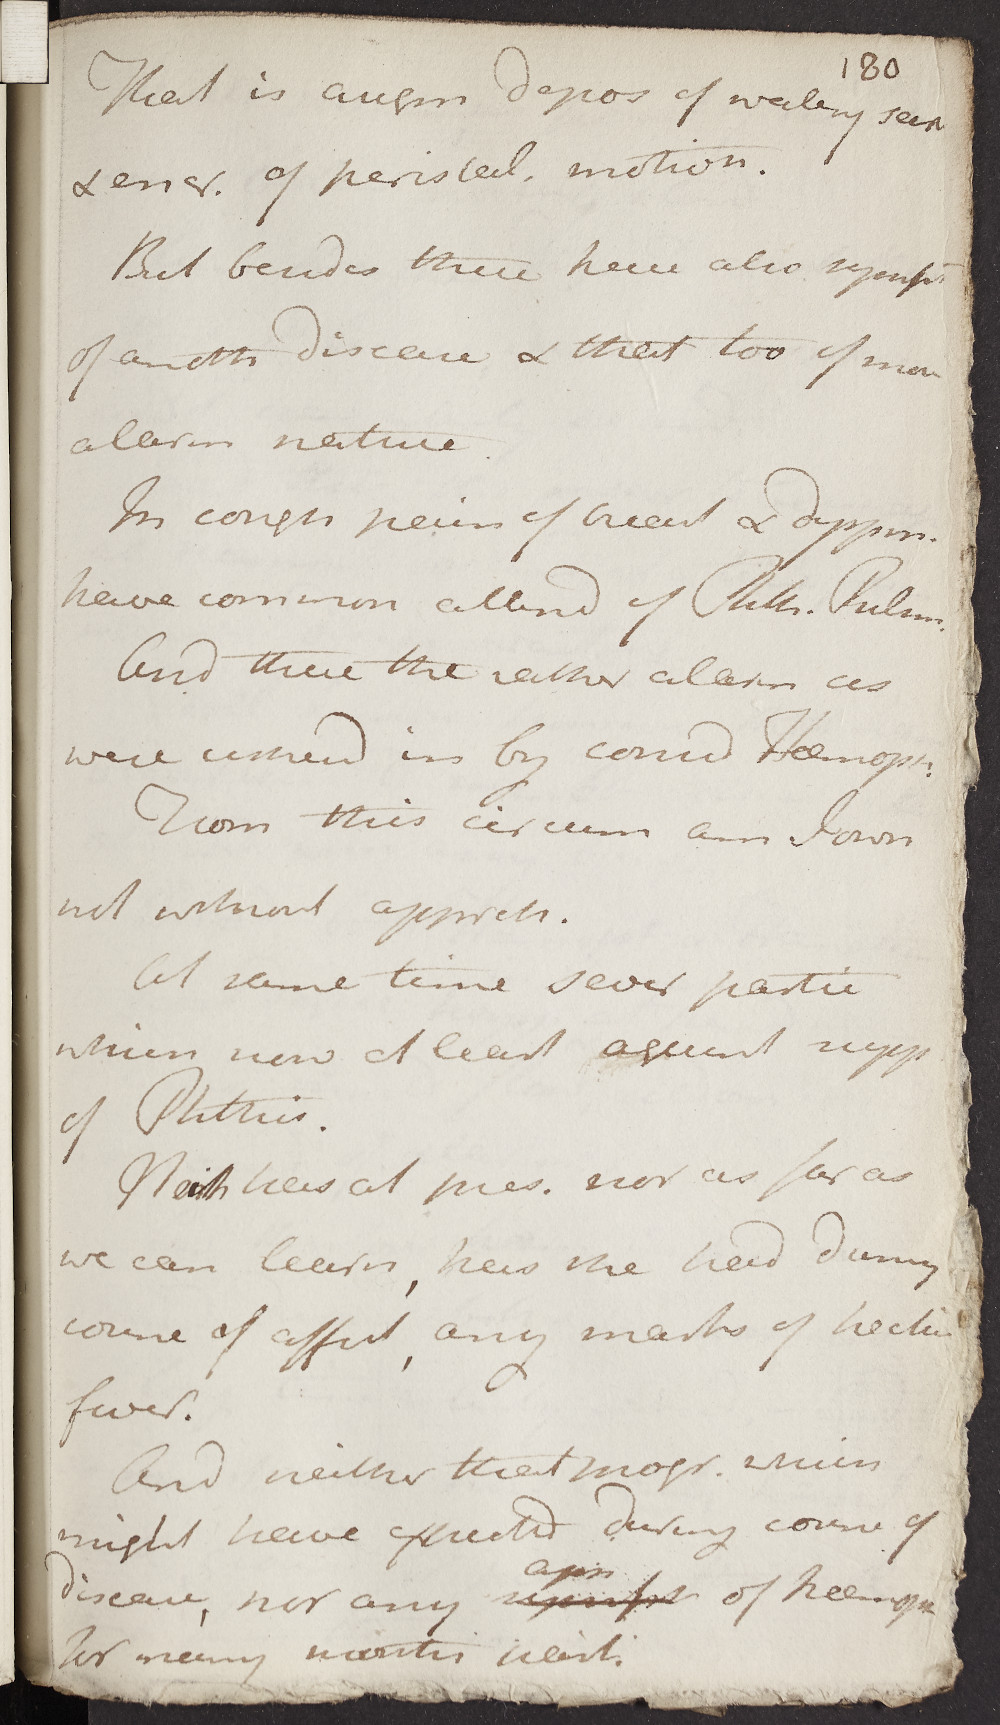 180
That is augm depos of watery secr
& encr. of peristal. motion.
But besides these have also sympt
of anoth disease & that too of more
alarm nature.
In cough pain of breast & dyspn.
have common attend of Phth. Pulm.
And these the rather alarm as
were usherd in by consid Hemopt.
From this circum am I own
not without appreh.
At same time sever partic
which now at least against supp
of Phthis.
Neith has at pres. nor as far as
we can learn, has she had during
course of affect, any marks of hectic
fever.
And neither that progr. which
might have expected during course of
apn
disease, nor any sympt of hemopt
for many months past.